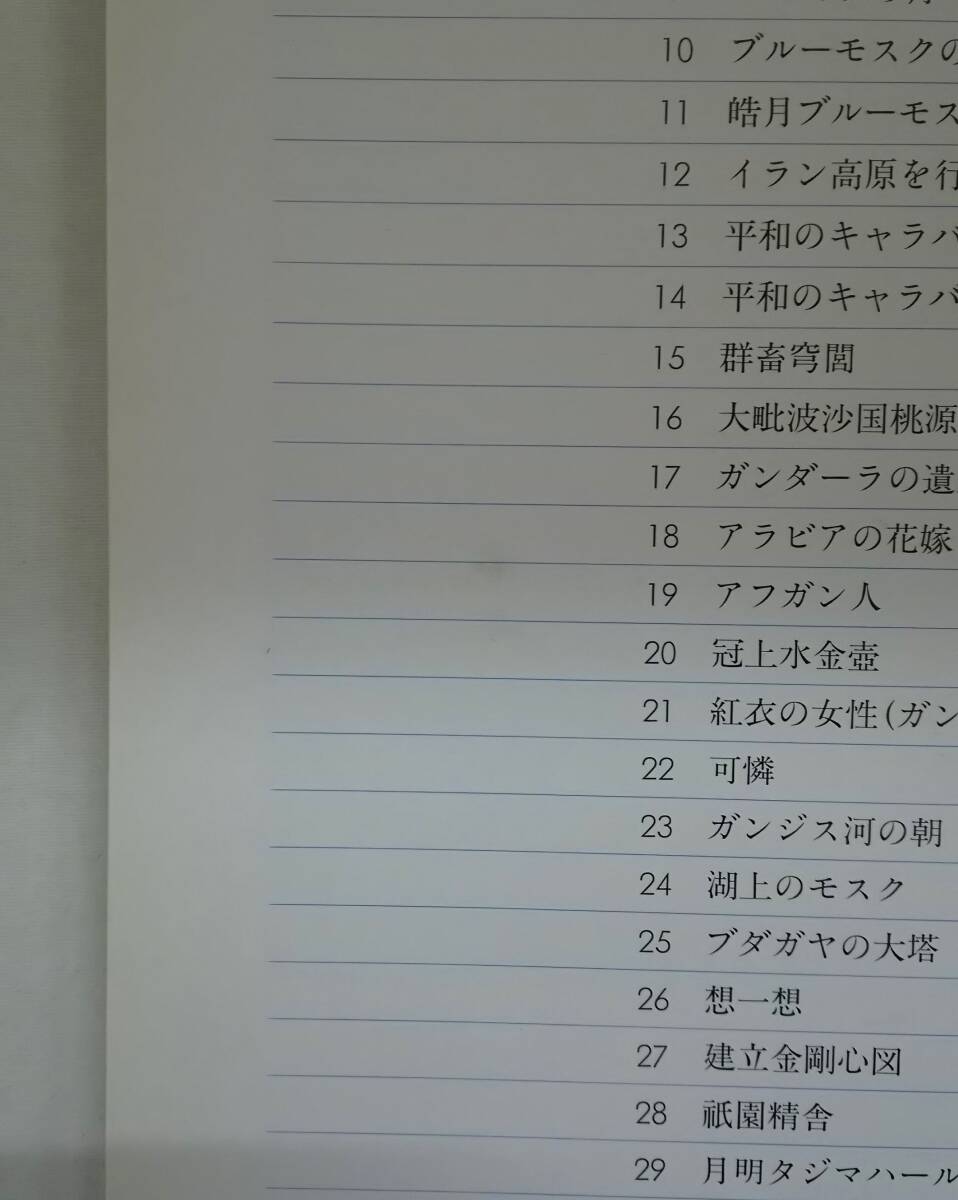 10 ブルーモスクの
11 皓月ブルーモス
12 イラン高原を行
13 平和のキャラバ
14 平和のキャラバ
15 群畜穹閭
16 大毗波沙国桃源
17 ガンダーラの遺
18 アラビアの花嫁
19 アフガン人
20 冠上水金壺
21 紅衣の女性(ガン
22 可憐
23 ガンジス河の朝
24 湖上のモスク
25 ブダガヤの大塔
26 想一想
27 建立金剛心図
28 祇園精舎
29 月明タジマハール